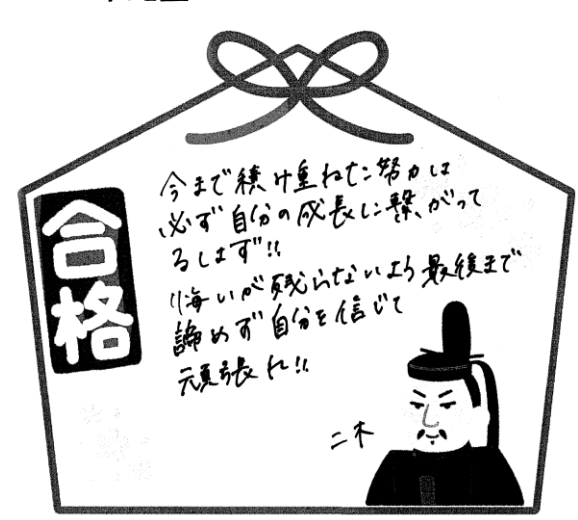 合格
今まで積け重ねた努力は
必ず自分の成長に繋がって
るはず!!
悔いが残らないよう最後まで
諦めず自分を信じて
頑張れ!!
二木